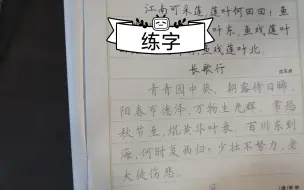 江南可采莲莲叶何田田；鱼
叶东，鱼戏莲
鱼戏莲叶北。
练字
长歌行
青青园中葵，朝露待日晞，
阳春布德泽，万物生光辉。常恐
秋节至，焜黄华叶衰。百川东到
海，何时复西归；少壮不努力，老
大徒伤悲。